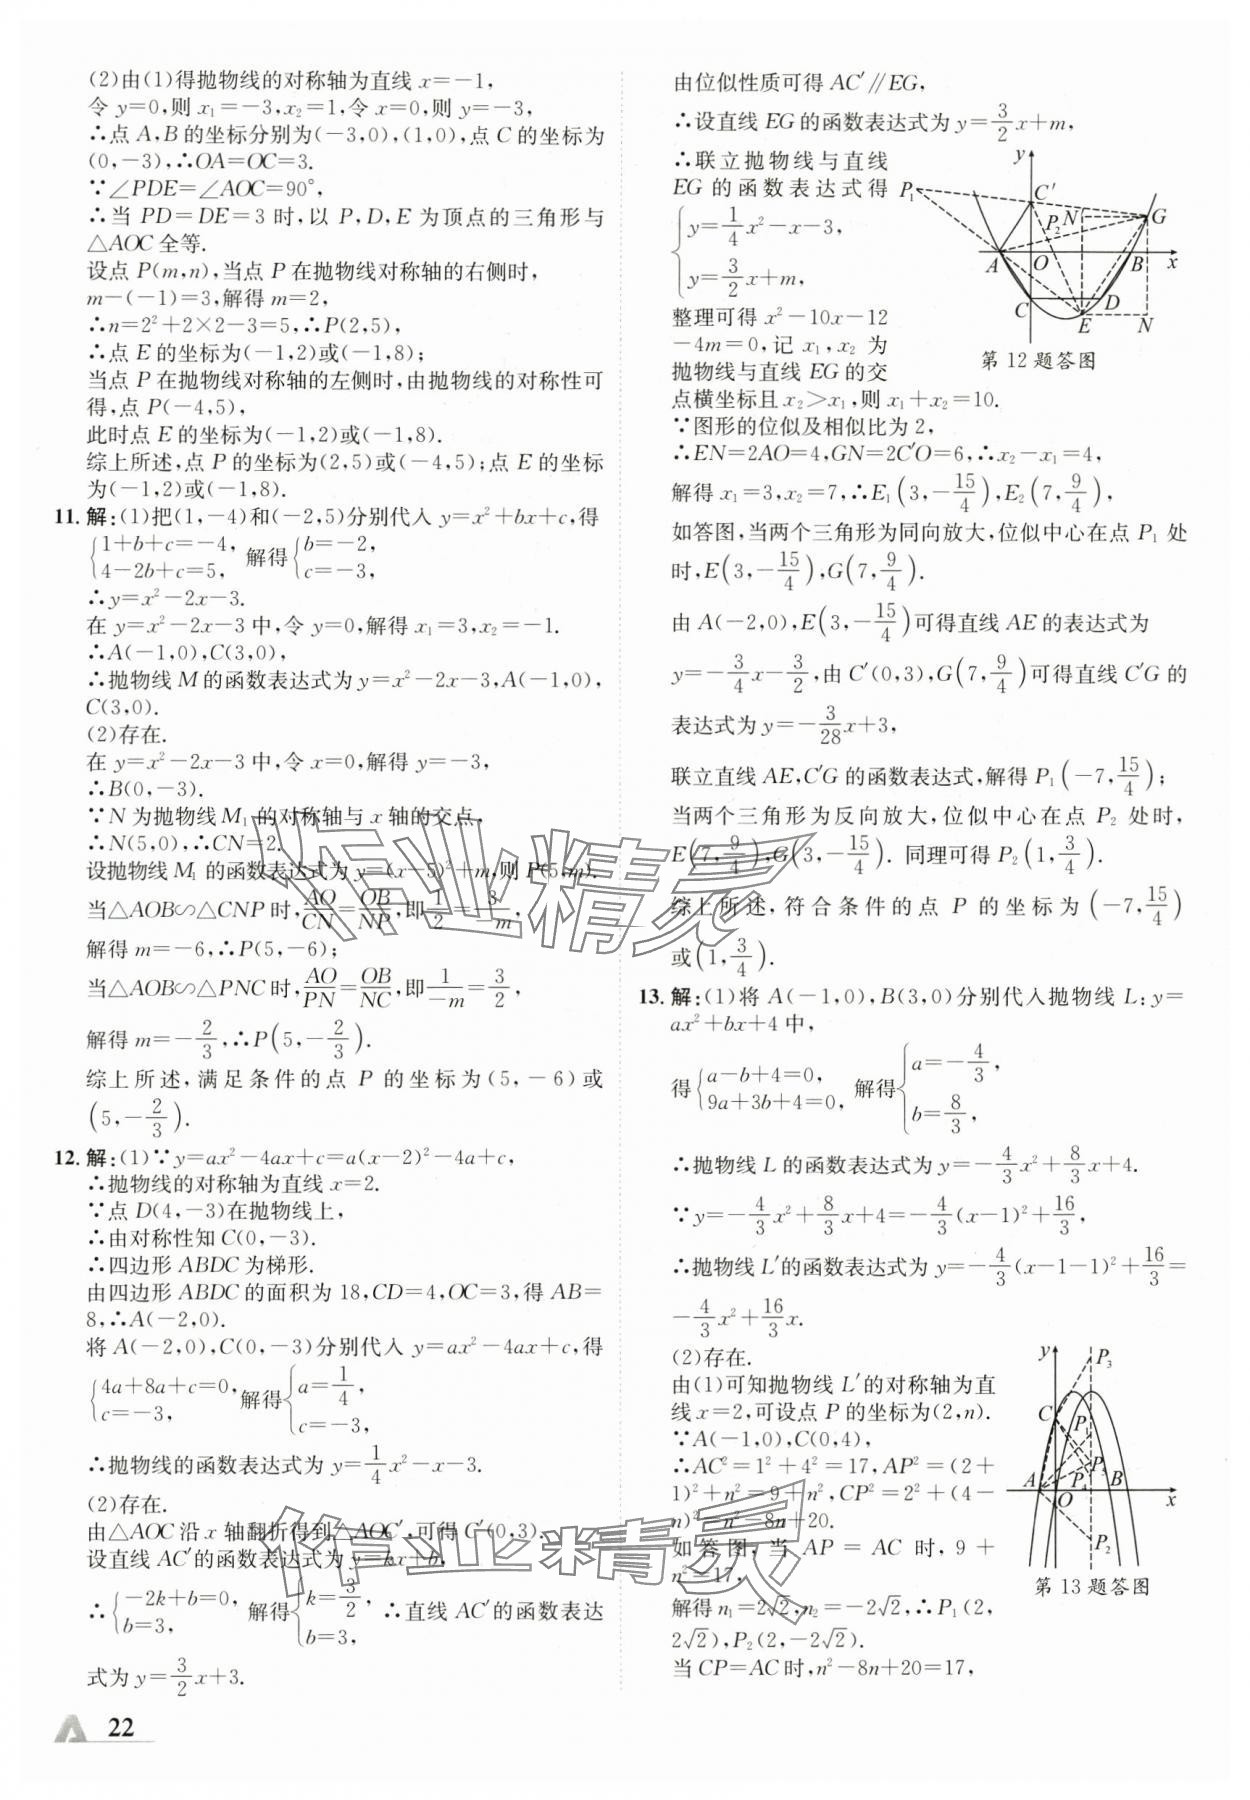 (2)由(1)得抛物线的对称轴为直线 x=-1,
令 y=0,则 x₁=-3,x₂=1,令 x=0,则 y=-3,
∴点 A,B 的坐标分别为(-3,0),(1,0),点 C 的坐标为
(0,-3),∴OA=OC=3.
∵∠PDE=∠AOC=90°,
∴当 PD=DE=3 时,以 P,D,E 为顶点的三角形与
△AOC 全等.
设点 P(m,n),当点 P 在抛物线对称轴的右侧时,
m-(-1)=3,解得 m=2,
∴n=2²+2×2-3=5,∴P(2,5),
∴点 E 的坐标为(-1,2)或(-1,8);
当点 P 在抛物线对称轴的左侧时,由抛物线的对称性可
得,点 P(-4,5),
此时点 E 的坐标为(-1,2)或(-1,8).
综上所述,点 P 的坐标为(2,5)或(-4,5);点 E 的坐标
为(-1,2)或(-1,8).
11. 解:(1)把(1,-4)和(-2,5)分别代入 y=x²+bx+c,得
{1+b+c=-4, 4-2b+c=5, 解得{b=-2, c=-3,
∴y=x²-2x-3.
在 y=x²-2x-3 中,令 y=0,解得 x₁=3,x₂=-1.
∴A(-1,0),C(3,0),
∴抛物线 M 的函数表达式为 y=x²-2x-3,A(-1,0),
C(3,0).
(2)存在.
在 y=x²-2x-3 中,令 x=0,解得 y=-3,
∴B(0,-3).
∵N 为抛物线 M₁ 的对称轴与 x 轴的交点,
∴N(5,0),∴CN=2.
设抛物线 M₁ 的函数表达式为 y=(x-5)²+m,则 P(5,m).
当△AOB∽△CNP 时,AO/CN=OB/NP,即1/2=3/-m,
解得 m=-6,∴P(5,-6);
当△AOB∽△PNC 时,AO/PN=OB/NC,即1/-m=3/2,
解得 m=-2/3,∴P(5,-2/3).
综上所述,满足条件的点 P 的坐标为(5,-6)或
(5,-2/3).
12. 解:(1)∵y=ax²-4ax+c=a(x-2)²-4a+c,
∴抛物线的对称轴为直线 x=2.
∵点 D(4,-3)在抛物线上,
∴由对称性知 C(0,-3).
∴四边形 ABDC 为梯形.
由四边形 ABDC 的面积为 18,CD=4,OC=3,得 AB=
8,∴A(-2,0).
将 A(-2,0),C(0,-3)分别代入 y=ax²-4ax+c,得
{4a+8a+c=0, c=-3, 解得{a=1/4, c=-3,
∴抛物线的函数表达式为 y=1/4x²-x-3.
(2)存在.
由△AOC 沿 x 轴翻折得到△AOC′,可得 C′(0,3).
设直线 AC′的函数表达式为 y=kx+b,
∴{-2k+b=0, b=3, 解得{k=3/2, b=3, ∴直线 AC′的函数表达
式为 y=3/2x+3.
由位似性质可得 AC′∥EG,
∴设直线 EG 的函数表达式为 y=3/2x+m,
∴联立抛物线与直线
EG 的函数表达式得
{y=1/4x²-x-3,
y=3/2x+m,
整理可得 x²-10x-12
-4m=0,记 x₁,x₂ 为
抛物线与直线 EG 的交
y
P₁
C′
N
P₂
G
A
O
B
x
C
D
E
N
第 12 题答图
点横坐标且 x₂>x₁,则 x₁+x₂=10.
∵图形的位似及相似比为 2,
∴EN=2AO=4,GN=2C′O=6,∴x₂-x₁=4,
解得 x₁=3,x₂=7,∴E₁(3,-15/4),E₂(7,9/4),
如答图,当两个三角形为同向放大,位似中心在点 P₁ 处
时,E(3,-15/4),G(7,9/4).
由 A(-2,0),E(3,-15/4)可得直线 AE 的表达式为
y=-3/4x-3/2,由 C′(0,3),G(7,9/4)可得直线 C′G 的
表达式为 y=-3/28x+3,
联立直线 AE,C′G 的函数表达式,解得 P₁(-7,15/4);
当两个三角形为反向放大,位似中心在点 P₂ 处时,
E(7,9/4),G(3,-15/4). 同理可得 P₂(1,3/4).
综上所述,符合条件的点 P 的坐标为(-7,15/4)
或(1,3/4).
13. 解:(1)将 A(-1,0),B(3,0)分别代入抛物线 L:y=
ax²+bx+4 中,
得{a-b+4=0, 9a+3b+4=0, 解得{a=-4/3, b=8/3,
∴抛物线 L 的函数表达式为 y=-4/3x²+8/3x+4.
∵y=-4/3x²+8/3x+4=-4/3(x-1)²+16/3,
∴抛物线 L′的函数表达式为 y=-4/3(x-1-1)²+16/3=
-4/3x²+16/3x.
(2)存在.
由(1)可知抛物线 L′的对称轴为直
线 x=2,可设点 P 的坐标为(2,n).
∵A(-1,0),C(0,4),
∴AC²=1²+4²=17,AP²=(2+
1)²+n²=9+n²,CP²=2²+(4-
n)²=n²-8n+20.
如答图,当 AP=AC 时,9+
n²=17,
y
P₃
C
P₁
P₅
P₄
A
O
B
x
P₂
第 13 题答图
解得 n₁=2√2,n₂=-2√2,∴P₁(2,
2√2),P₂(2,-2√2).
当 CP=AC 时,n²-8n+20=17,
22
作业精灵
作业精灵